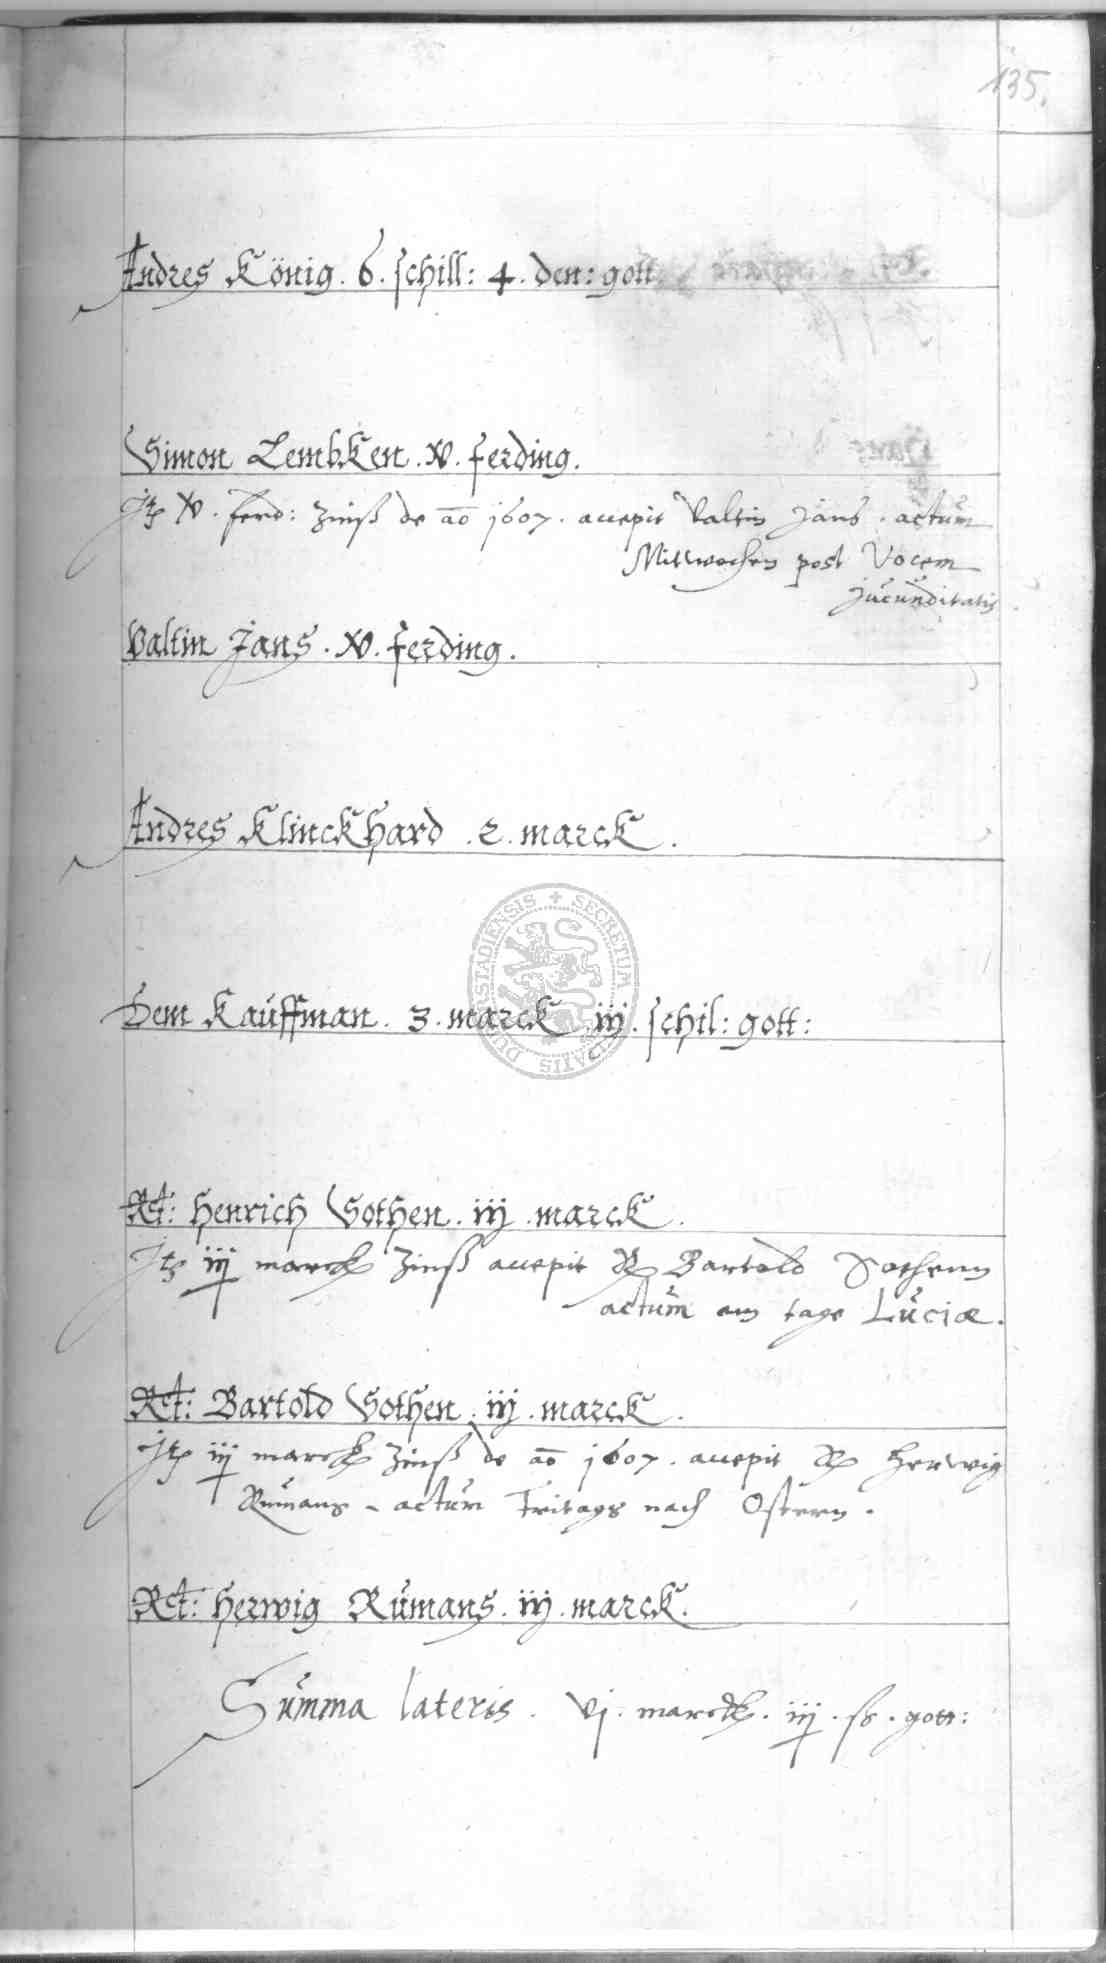 135.
Andres König . 6 . schill : 4 . den : gott
Simon Lembken . xv . ferding .
Itz xv . ferd : Zinß de ao 1607 . accepit Valtin Jans . actum
Mittwochen post Vocem
Jucunditatis
Valtin Jans . xv . ferding .
Andres Klinckhard . 2 . marck .
Dem Kauffman . 3 . marck . iij . schil : gott :
SECRETUM
DUDERSTADIENSIS
Rct : Henrich Sothen . iij . marck .
Itz iij marck Zinß accepit R Bartold Sothenn
actum am tage Luciæ .
Rct : Bartold Sothen . iij . marck .
Itz iij marck Zinß de ao 1607 . accepit R Herwig
Rumans - actum Fritags nach Ostern .
Rct : Herwig Rumans . iij . marck .
Summa lateris . vj . marck . iij . ss . gott :